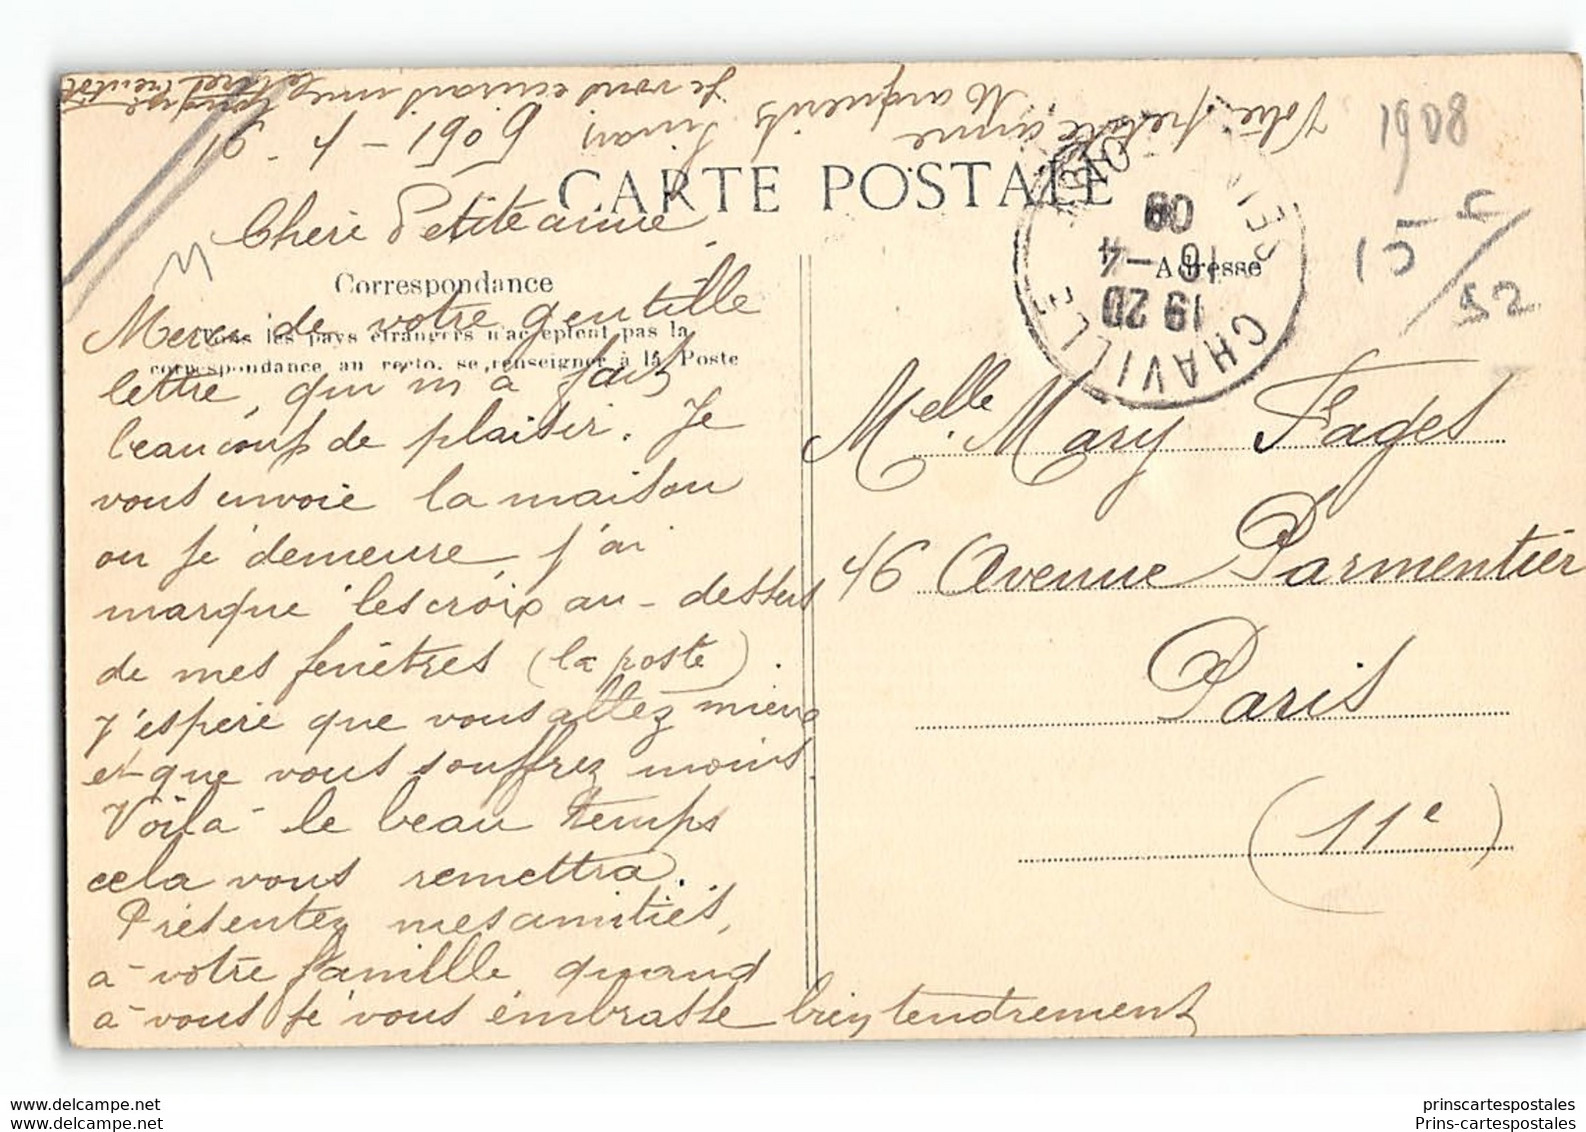 16 - 4 - 1909
CARTE POSTALE
Cherie Petite amie
Correspondance
Tous les pays étrangers n'acceptent pas la
correspondance au recto. se renseigner à la Poste
Merci de votre gentille
lettre, qui m'a fait
beaucoup de plaisir. Je
vous envoie la maison
ou je demeure, j'ai
marque les croix au-dessus
de mes fenêtres (la poste).
J'espere que vous allez mieux
et que vous souffrez moins.
Voila le beau temps
cela vous remettra.
Présentez mes amitiés,
a votre famille quand
a vous je vous embrasse bien tendrement
Votre petite amie
Marguerite
Je vous ecrirai une lettre
bientôt
Adresse
Melle. Mary Fages
46 Avenue Parmentier
Paris
(11e)
CHAVILLE
19 20
16 -4
09
1908
15
52
prinscartespostales
Prins-cartespostales.com
prinscartespostales
Prins-cartespostales.com